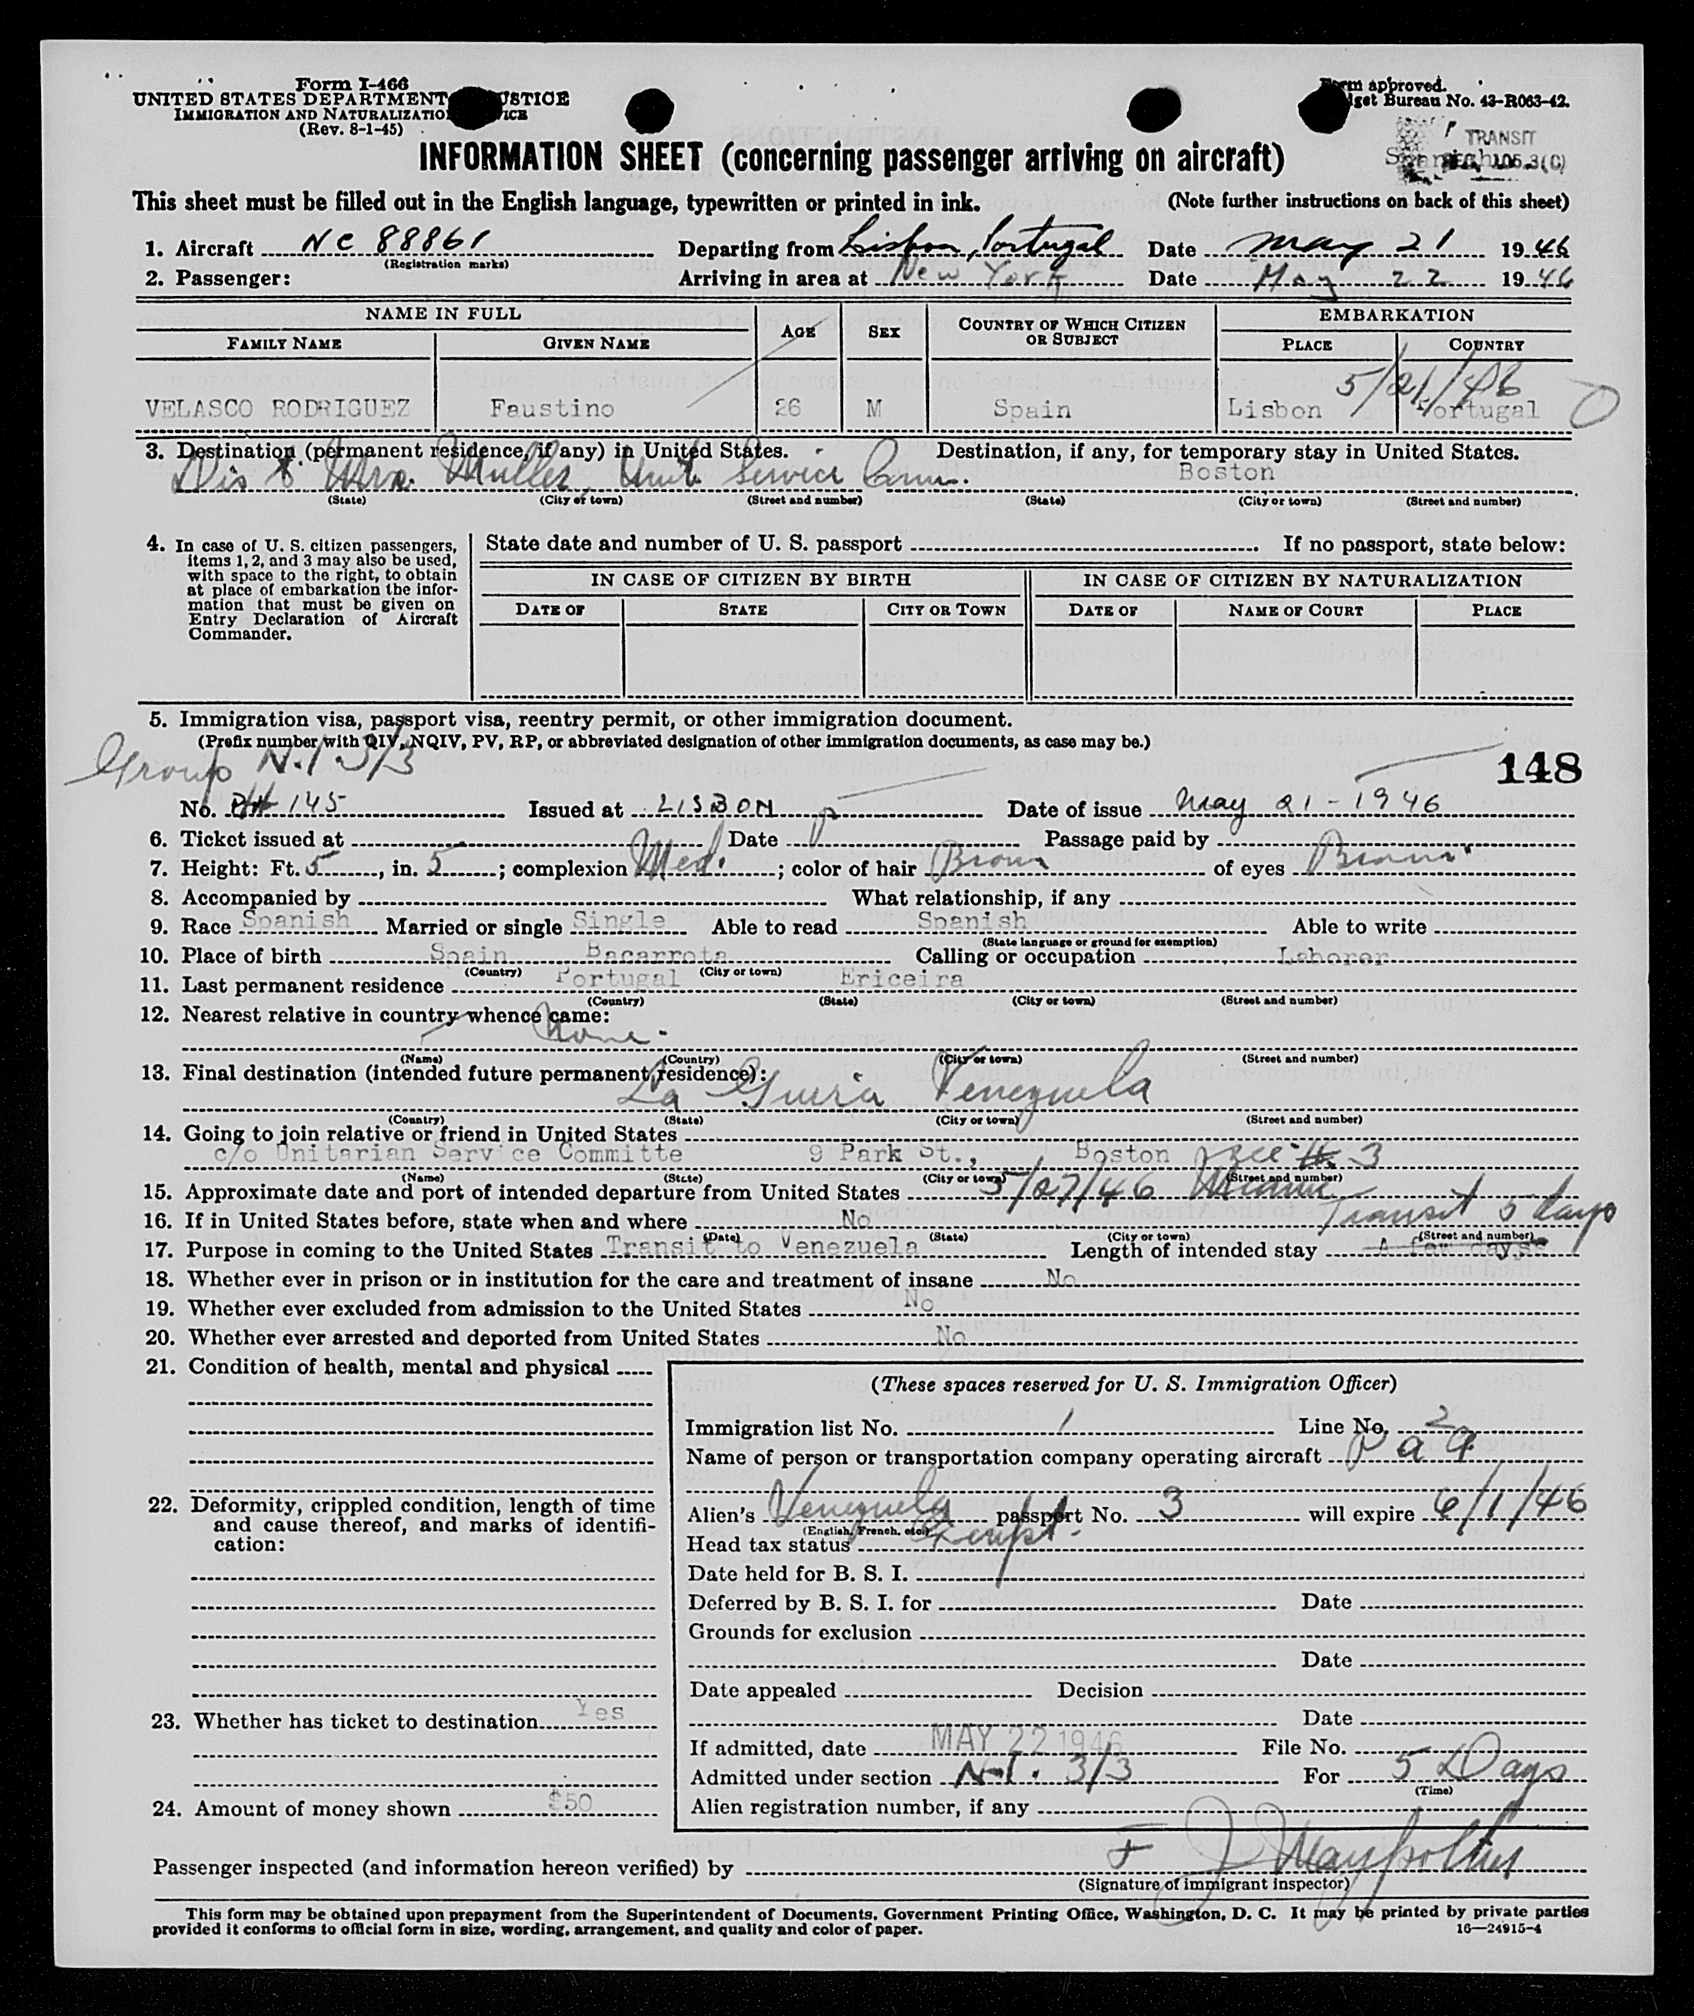 Form I-466
UNITED STATES DEPARTMENT JUSTICE
IMMIGRATION AND NATURALIZATION SERVICE
(Rev. 8-1-45)
Form approved.
Budget Bureau No. 43-R063-42.
TRANSIT
105.3(C)
INFORMATION SHEET (concerning passenger arriving on aircraft)
This sheet must be filled out in the English language, typewritten or printed in ink. (Note further instructions on back of this sheet)
1. Aircraft NC 88861 Departing from Lisbon, Portugal Date May 21 1946
(Registration marks)
2. Passenger: Arriving in area at New York Date May 22 1946
NAME IN FULL AGE SEX COUNTRY OF WHICH CITIZEN OR SUBJECT EMBARKATION
FAMILY NAME GIVEN NAME PLACE COUNTRY
5/21/46
VELASCO RODRIGUEZ Faustino 26 M Spain Lisbon Portugal
3. Destination (permanent residence, if any) in United States. Destination, if any, for temporary stay in United States.
Dis to Mrs. Muller, Unit. Service Comm. Boston
(State) (City or town) (Street and number) (State) (City or town) (Street and number)
4. In case of U. S. citizen passengers, items 1, 2, and 3 may also be used, with space to the right, to obtain at place of embarkation the information that must be given on Entry Declaration of Aircraft Commander.
State date and number of U. S. passport If no passport, state below:
IN CASE OF CITIZEN BY BIRTH IN CASE OF CITIZEN BY NATURALIZATION
DATE OF STATE CITY OR TOWN DATE OF NAME OF COURT PLACE
5. Immigration visa, passport visa, reentry permit, or other immigration document.
(Prefix number with QIV, NQIV, PV, RP, or abbreviated designation of other immigration documents, as case may be.)
Group N.I 3/3
148
No. 145 Issued at LISBON Date of issue May 21-1946
6. Ticket issued at Date Passage paid by
7. Height: Ft. 5, in. 5; complexion Med.; color of hair Brown of eyes Brown
8. Accompanied by What relationship, if any
9. Race Spanish Married or single Single Able to read Spanish Able to write
(State language or ground for exemption)
10. Place of birth Spain Bacarrota Calling or occupation Laborer
(Country) (City or town)
11. Last permanent residence Portugal Ericeira
(Country) (State) (City or town) (Street and number)
12. Nearest relative in country whence came:
None.
(Name) (Country) (City or town) (Street and number)
13. Final destination (intended future permanent residence):
La Guira Venezuela
(Country) (State) (City or town) (Street and number)
14. Going to join relative or friend in United States
c/o Unitarian Service Committe 9 Park St., Boston 3
(Name) (State) (City or town) (Street and number)
15. Approximate date and port of intended departure from United States 5/27/46 Miami
Transit 5 days
16. If in United States before, state when and where No
(Date) (State) (City or town) (Street and number)
17. Purpose in coming to the United States Transit to Venezuela Length of intended stay A few days
18. Whether ever in prison or in institution for the care and treatment of insane No
19. Whether ever excluded from admission to the United States No
20. Whether ever arrested and deported from United States No
21. Condition of health, mental and physical
22. Deformity, crippled condition, length of time and cause thereof, and marks of identification:
23. Whether has ticket to destination Yes
24. Amount of money shown $50
(These spaces reserved for U. S. Immigration Officer)
Immigration list No. 1 Line No. 2
Name of person or transportation company operating aircraft P a a
Alien's Venezuela passport No. 3 will expire 6/1/46
(English, French, etc.)
Head tax status Exempt.
Date held for B. S. I.
Deferred by B. S. I. for Date
Grounds for exclusion
Date
Date appealed Decision
Date
If admitted, date MAY 22 1946 File No.
Admitted under section N.I. 3/3 For 5 Days
(Time)
Alien registration number, if any
Passenger inspected (and information hereon verified) by
(Signature of immigrant inspector)
This form may be obtained upon prepayment from the Superintendent of Documents, Government Printing Office, Washington, D. C. It may be printed by private parties
provided it conforms to official form in size, wording, arrangement, and quality and color of paper. 16—24915-4